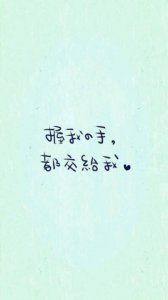 握我の手，
都交給我